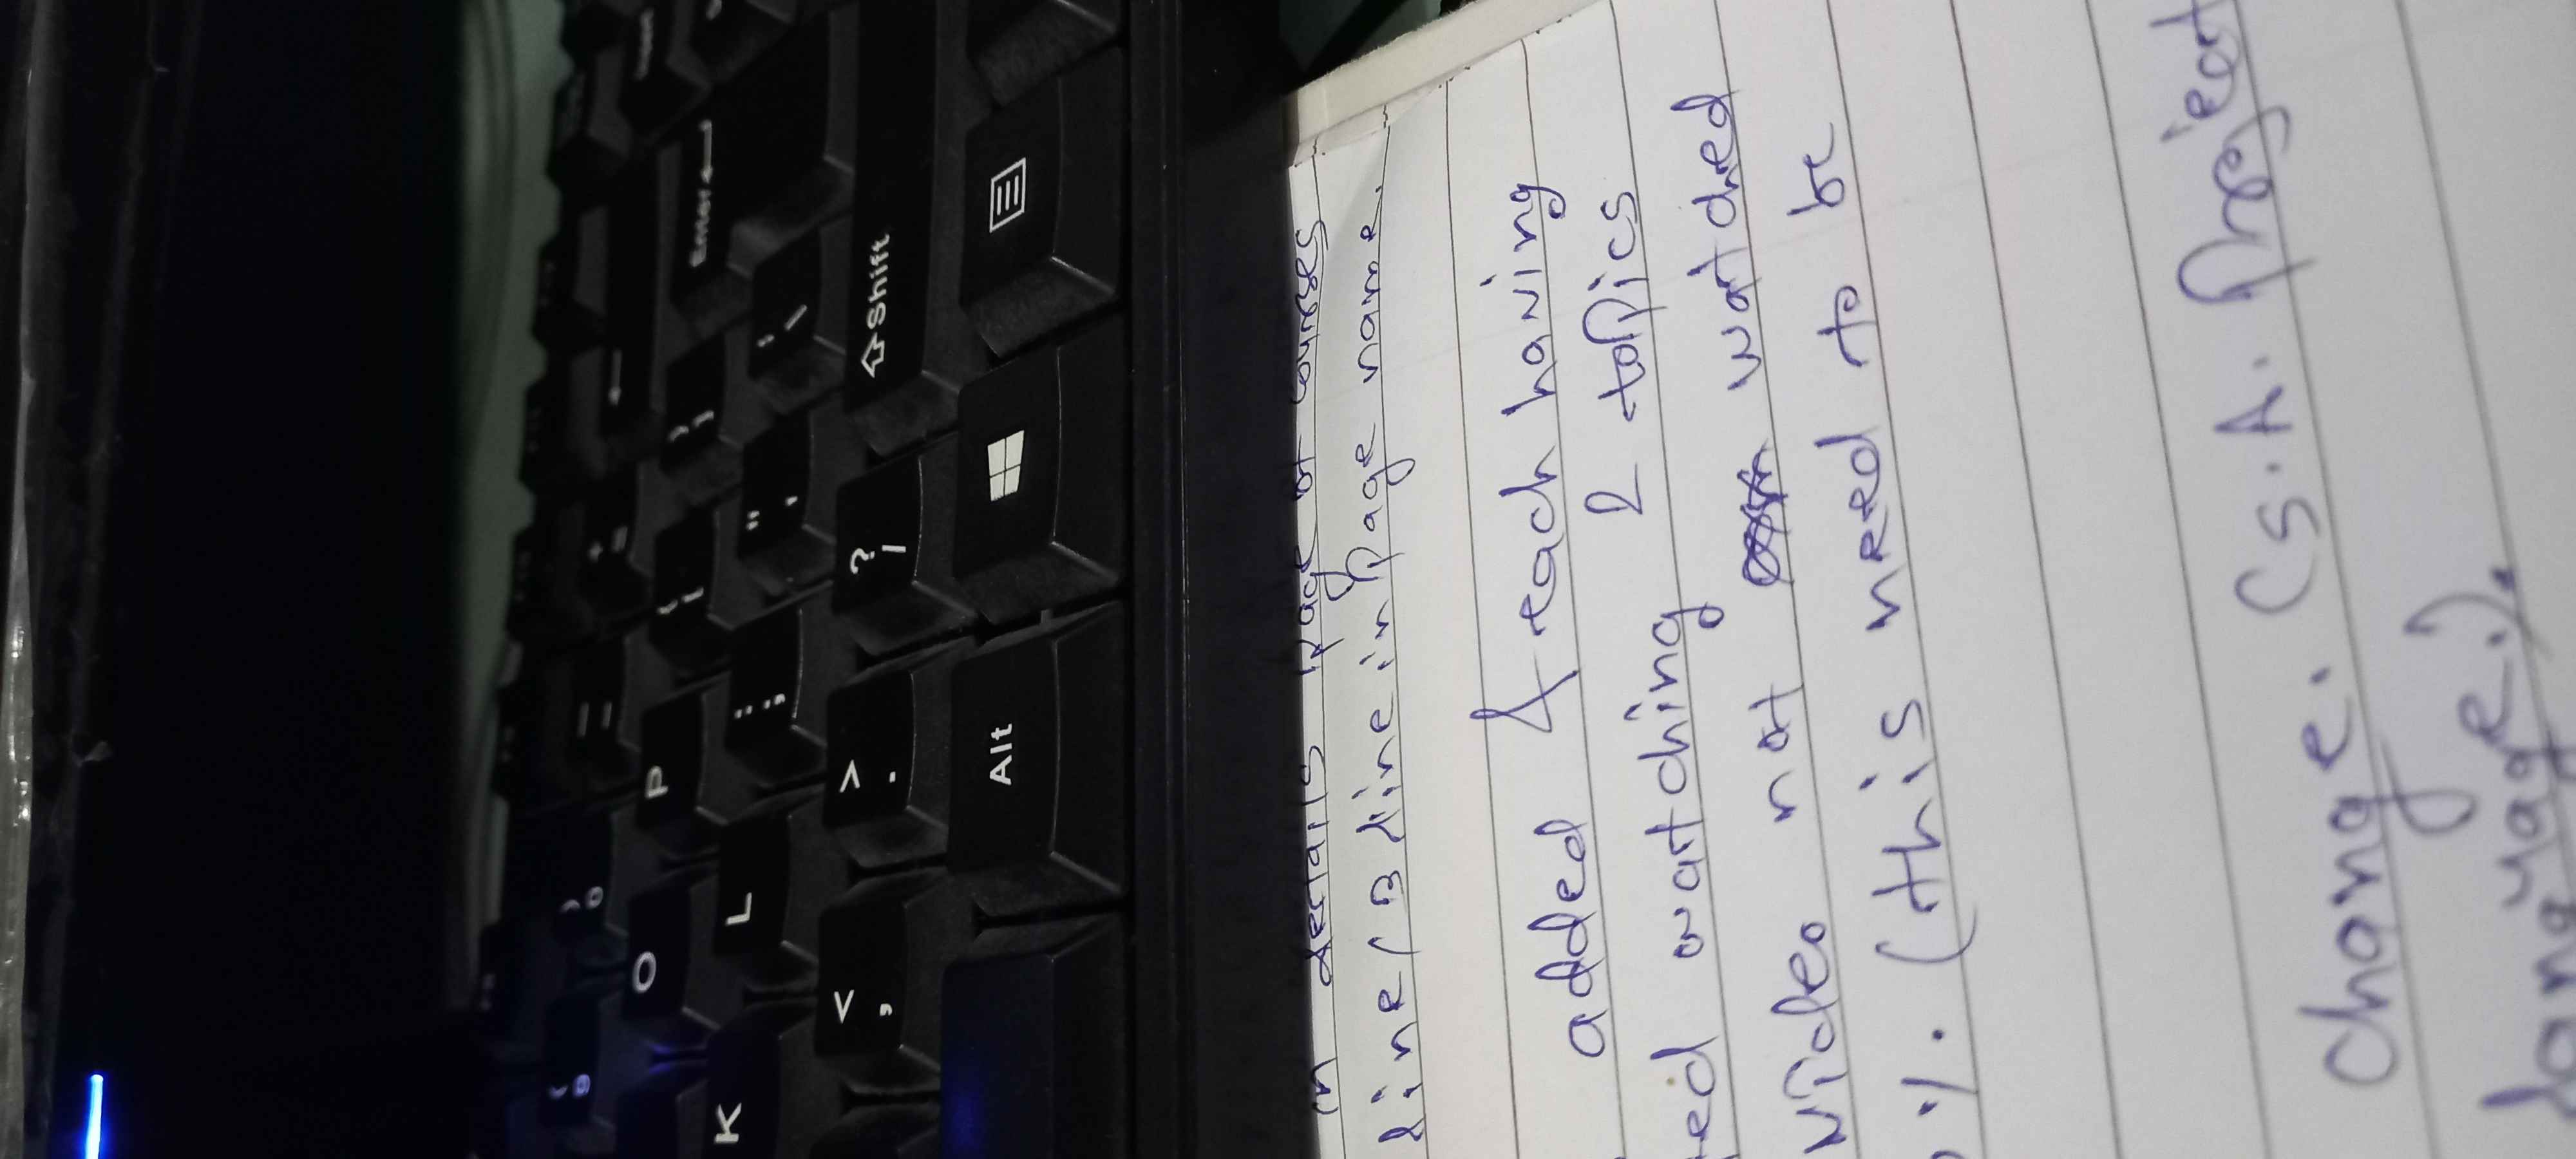 ( 9
) 0
_ -
+ =
←
Insert
O
P
{ [
} ]
Enter
K
L
: ;
" '
| \
< ,
> .
? /
Shift
Alt
in details page of courses
line / 3 line in page name.
added & each having
ed watching 2 topics
video not watched
%. (this need to be
change. (S.A. Project
language.).